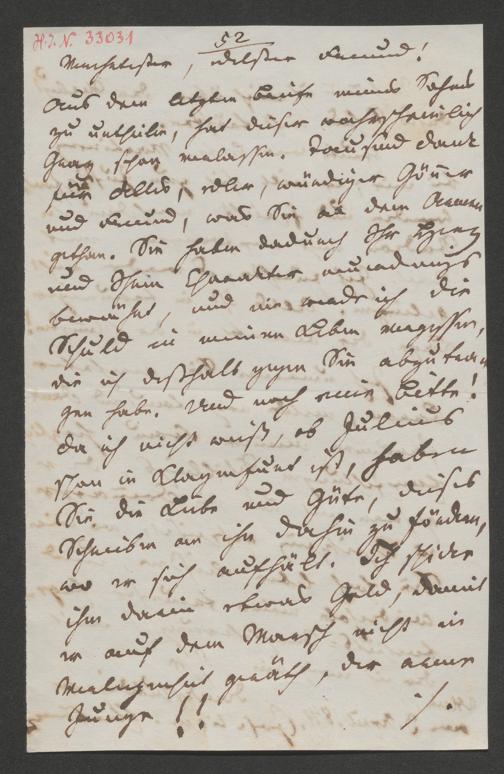 H.I.N. 33031
52
Verehrtester, edelster Freund!
Aus dem letzten Briefe meines Sohnes
zu urtheilen, hat dieser wahrscheinlich
Graz schon verlassen. Tausend Dank
für Alles, edler, würdiger Gönner
und Freund, was Sie an dem Armen
gethan. Sie haben dadurch Ihr Herz
und Ihren Charakter neuerdings
bewährt, und nie werde ich die
Schuld in meinem Leben vergessen,
die ich deßhalb gegen Sie abzutra-
gen habe. Und noch eine Bitte!
Da ich nicht weiß, ob Julius
schon in Klagenfurt ist, haben
Sie die Liebe und Güte, dieses
Schreiben an ihn dahin zu fördern,
wo er sich aufhält. Ich schicke
ihm darin etwas Geld, damit
er auf dem Marsch nicht in
Verlegenheit geräth, der arme
Junge!! ./.